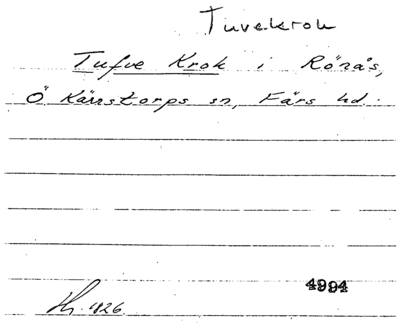 Tuvekrok
Tufve Krok i Rönås,
Ö Kärrstorps sn, Färs hd.
4994
426.